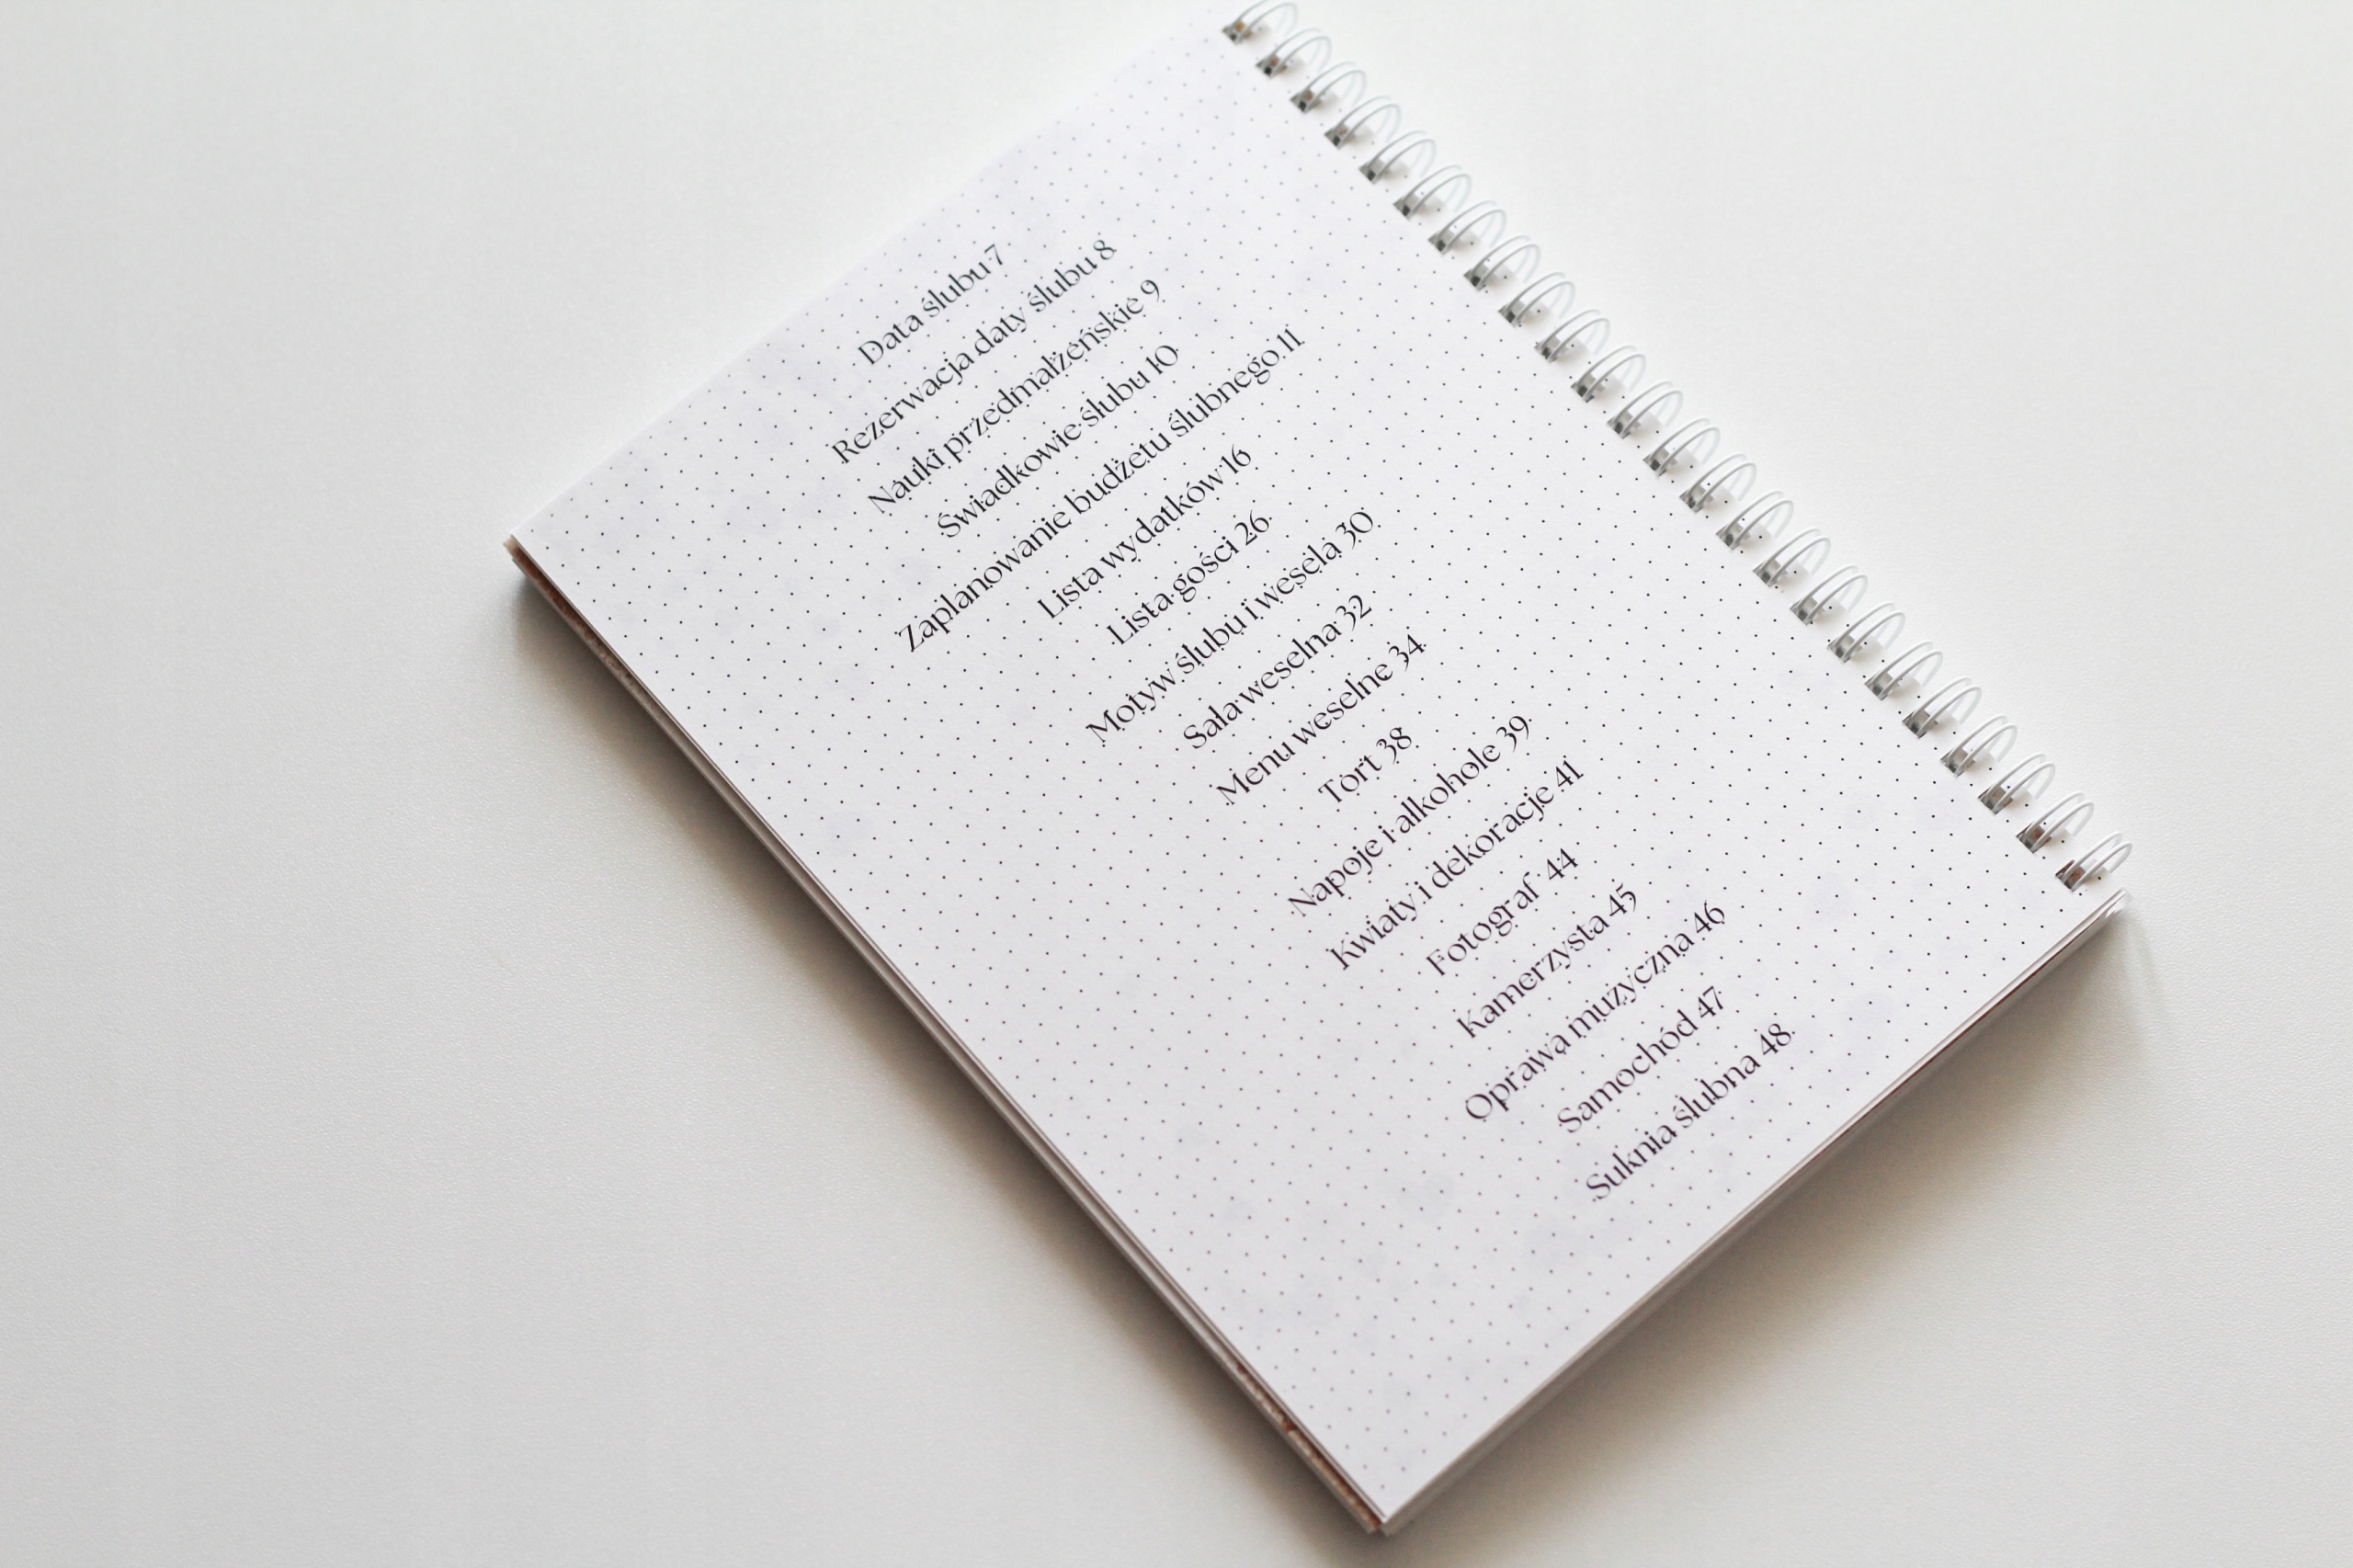 Data ślubu 7
Rezerwacja daty ślubu 8
Nauki przedmałżeńskie 9
Świadkowie ślubu 10
Zaplanowanie budżetu ślubnego 11
Lista wydatków 16
Lista gości 26
Motyw ślubu i wesela 30
Sala weselna 32
Menu weselne 34
Tort 38
Napoje i alkohole 39
Kwiaty i dekoracje 41
Fotograf 44
Kamerzysta 45
Oprawa muzyczna 46
Samochód 47
Suknia ślubna 48